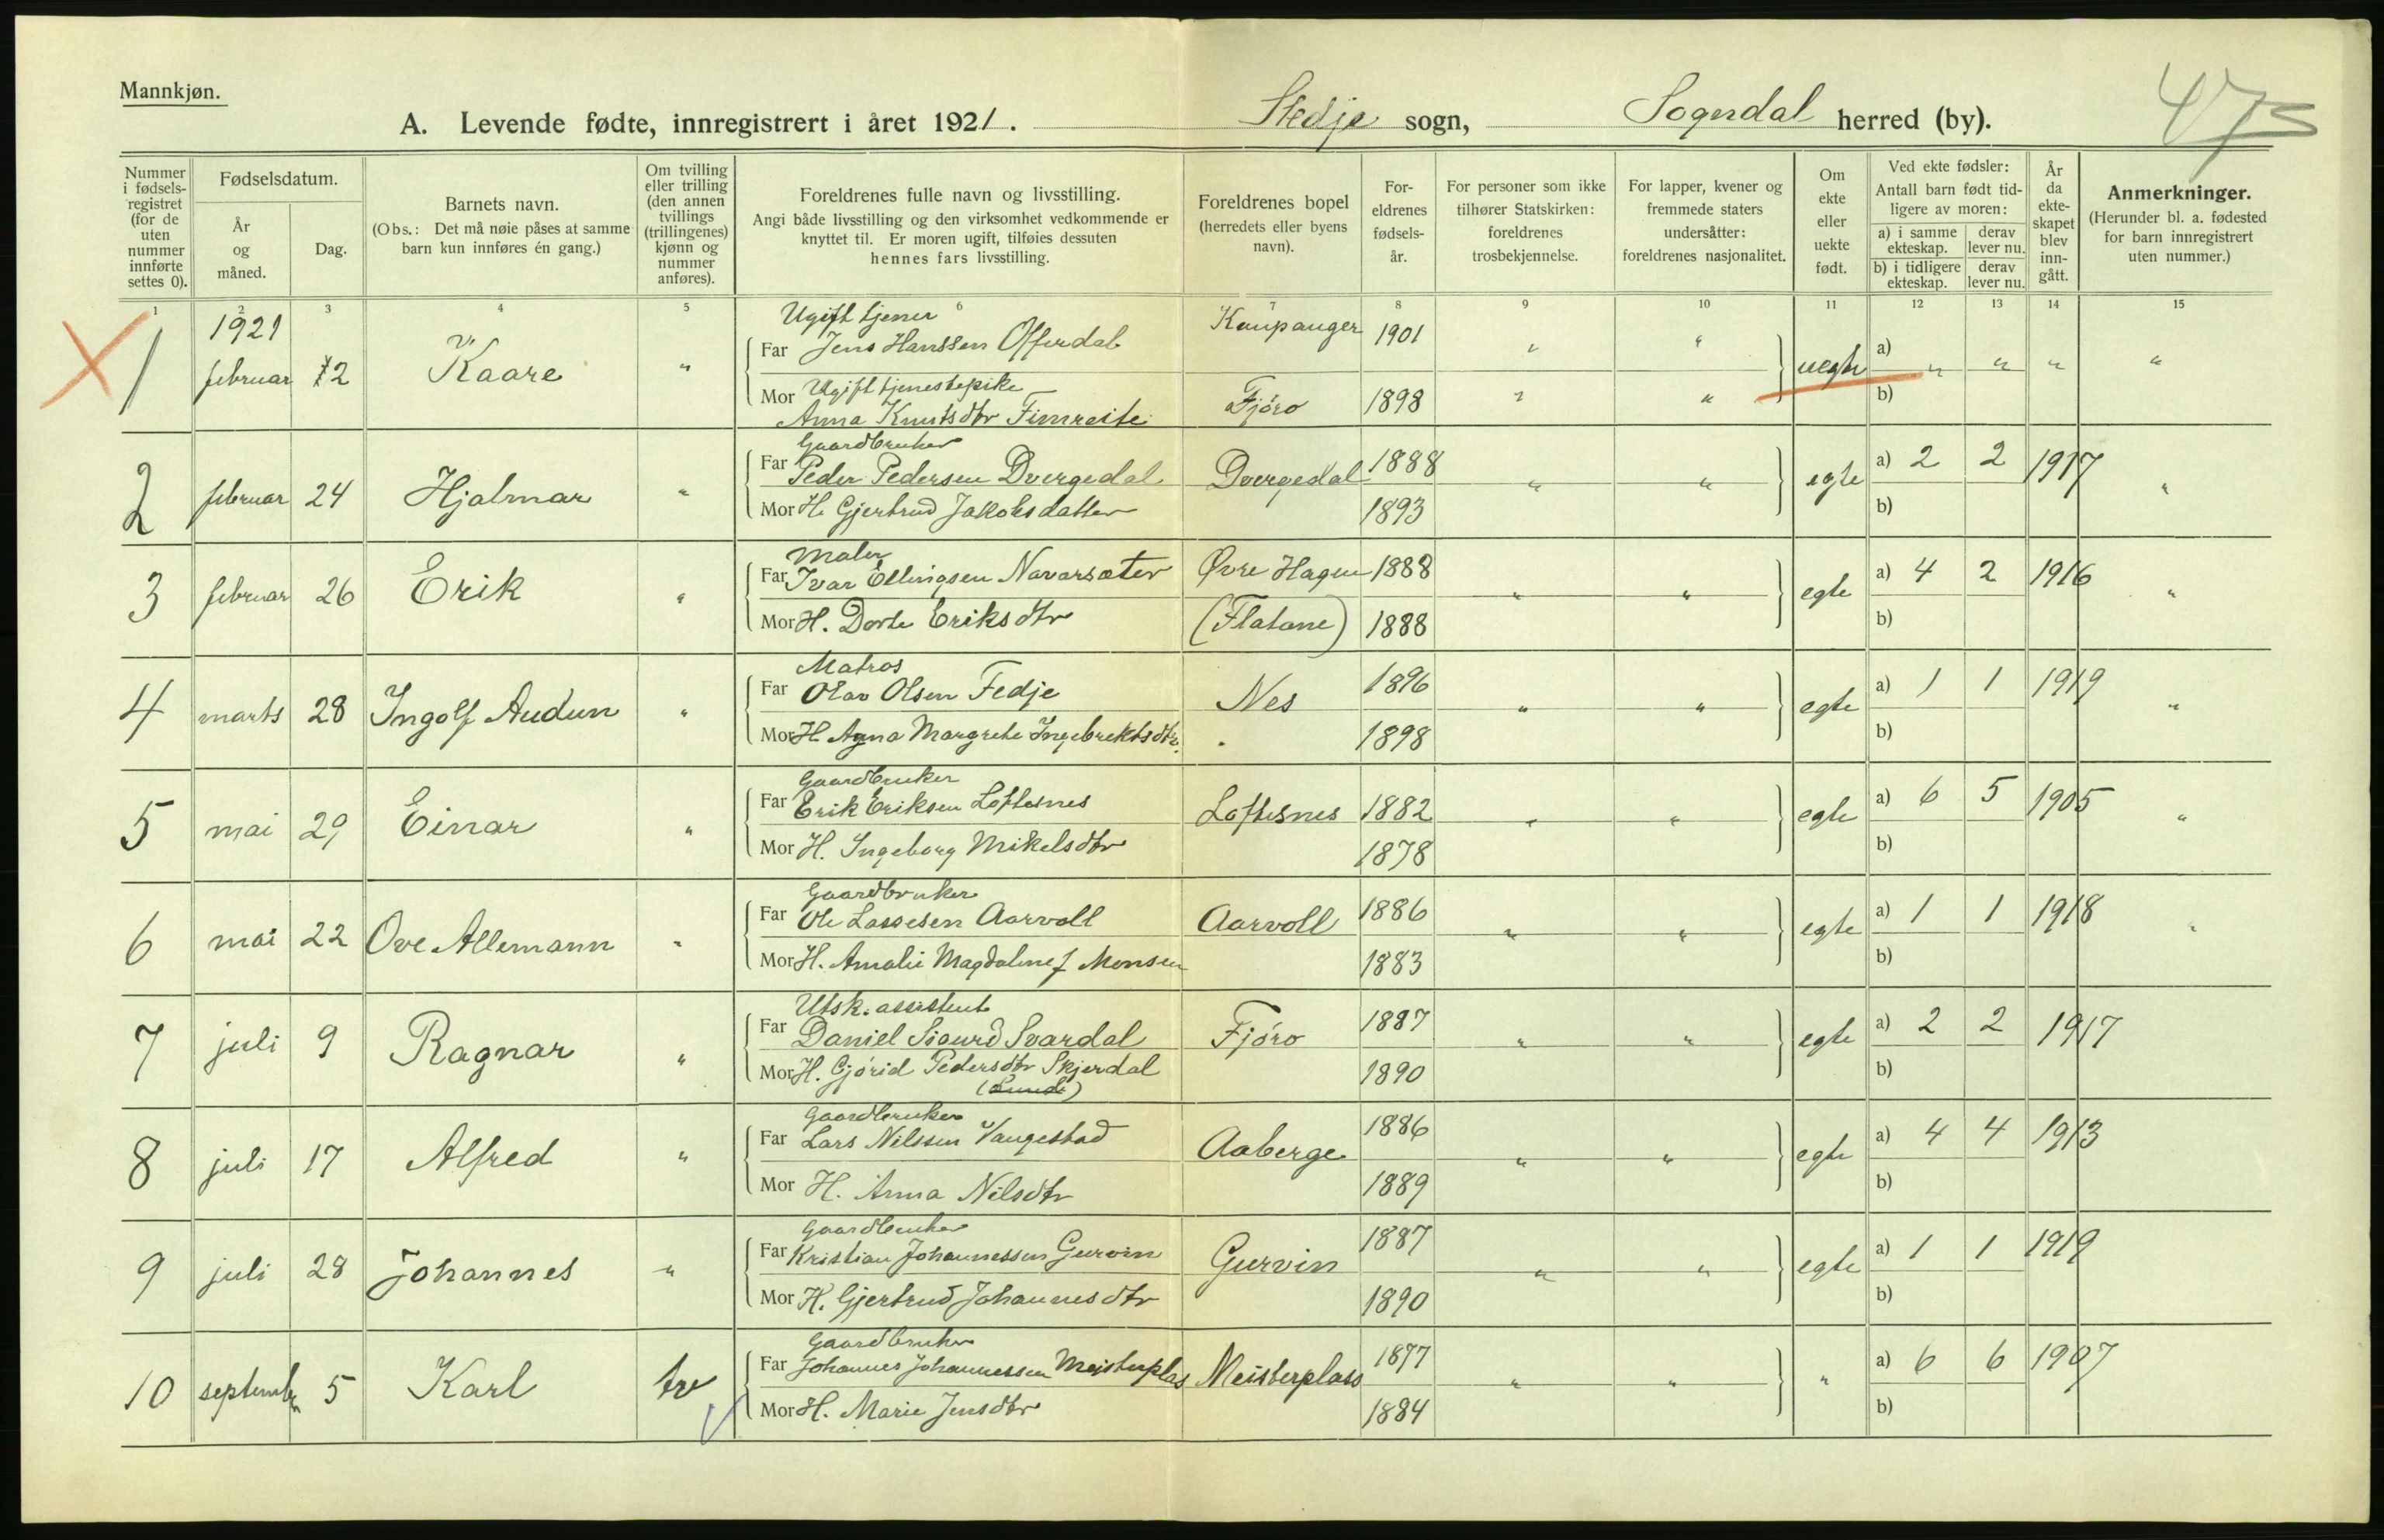 Mannkjøn.
A. Levende fødte, innregistrert i året 1921. Stedje sogn, Sogndal herred (by). 475
Nummer i fødselsregistret (for de uten nummer innførte settes 0).
Fødselsdatum.
År og måned.
Dag.
Barnets navn.
(Obs.: Det må nøie påses at samme barn kun innføres én gang.)
Om tvilling eller trilling (den annen tvillings (trillingenes) kjønn og nummer anføres).
Foreldrenes fulle navn og livsstilling.
Angi både livsstilling og den virksomhet vedkommende er knyttet til. Er moren ugift, tilføies dessuten hennes fars livsstilling.
Foreldrenes bopel (herredets eller byens navn).
Foreldrenes fødselsår.
For personer som ikke tilhører Statskirken: foreldrenes trosbekjennelse.
For lapper, kvener og fremmede staters undersåtter: foreldrenes nasjonalitet.
Om ekte eller uekte født.
Ved ekte fødsler:
Antall barn født tidligere av moren:
a) i samme ekteskap. derav lever nu.
b) i tidligere ekteskap. derav lever nu.
År da ekteskapet blev inngått.
Anmerkninger.
(Herunder bl. a. fødested for barn innregistrert uten nummer.)
1 2 3 4 5 6 7 8 9 10 11 12 13 14 15
1921 Ugift tjener
1 februar 12 Kaare " Far Jens Hanssen Offerdal Kaupanger 1901 " " uegte a) " " " "
Mor Ugift tjenestepike
Anna Knutsdtr Fimreite Fjøro 1898 " " b)
Gaardbruker
2 februar 24 Hjalmar " Far Peder Pedersen Dvergedal Dvergedal 1888 " " egte a) 2 2 1917 "
Mor H. Gjertrud Jakobsdatter 1893 b)
Maler
3 februar 26 Erik " Far Ivar Ellingsen Navarsæter Øvre Hagen 1888 " " egte a) 4 2 1916 "
Mor H. Dorte Eriksdtr (Flatane) 1888 b)
Matros
4 marts 28 Ingolf Audun " Far Olav Olsen Fedje Nes 1896 " " egte a) 1 1 1919 "
Mor H. Agna Margrete Ingebrektsdtr. 1898 b)
Gaardbruker
5 mai 29 Einar " Far Erik Eriksen Loftesnes Loftesnes 1882 " " egte a) 6 5 1905 "
Mor H. Ingeborg Mikelsdtr 1878 b)
Gaardbruker
6 mai 22 Ove Allemann " Far Ole Lassesen Aarvoll Aarvoll 1886 " " egte a) 1 1 1918 "
Mor H. Amalie Magdalene f Monsen 1883 b)
Utsk. assistent
7 juli 9 Ragnar " Far Daniel Sigurd Svardal Fjøro 1887 " " egte a) 2 2 1917
Mor H. Gjørid Pedersdtr Skjerdal 1890 b)
(Lunde)
Gaardbruker
8 juli 17 Alfred " Far Lars Nilssen Vangestad Aaberge 1886 " " egte a) 4 4 1913
Mor H. Anna Nilsdtr 1889 b)
Gaardbruker
9 juli 28 Johannes " Far Kristian Johannessen Gurvin Gurvin 1887 " " egte a) 1 1 1919
Mor H. Gjertrud Johannesdtr 1890 b)
Gaardbruker
10 september 5 Karl tre Far Johannes Johannessen Meisterplas Meisterplass 1877 " " " a) 6 6 1907
Mor H. Marie Jensdtr 1884 b)